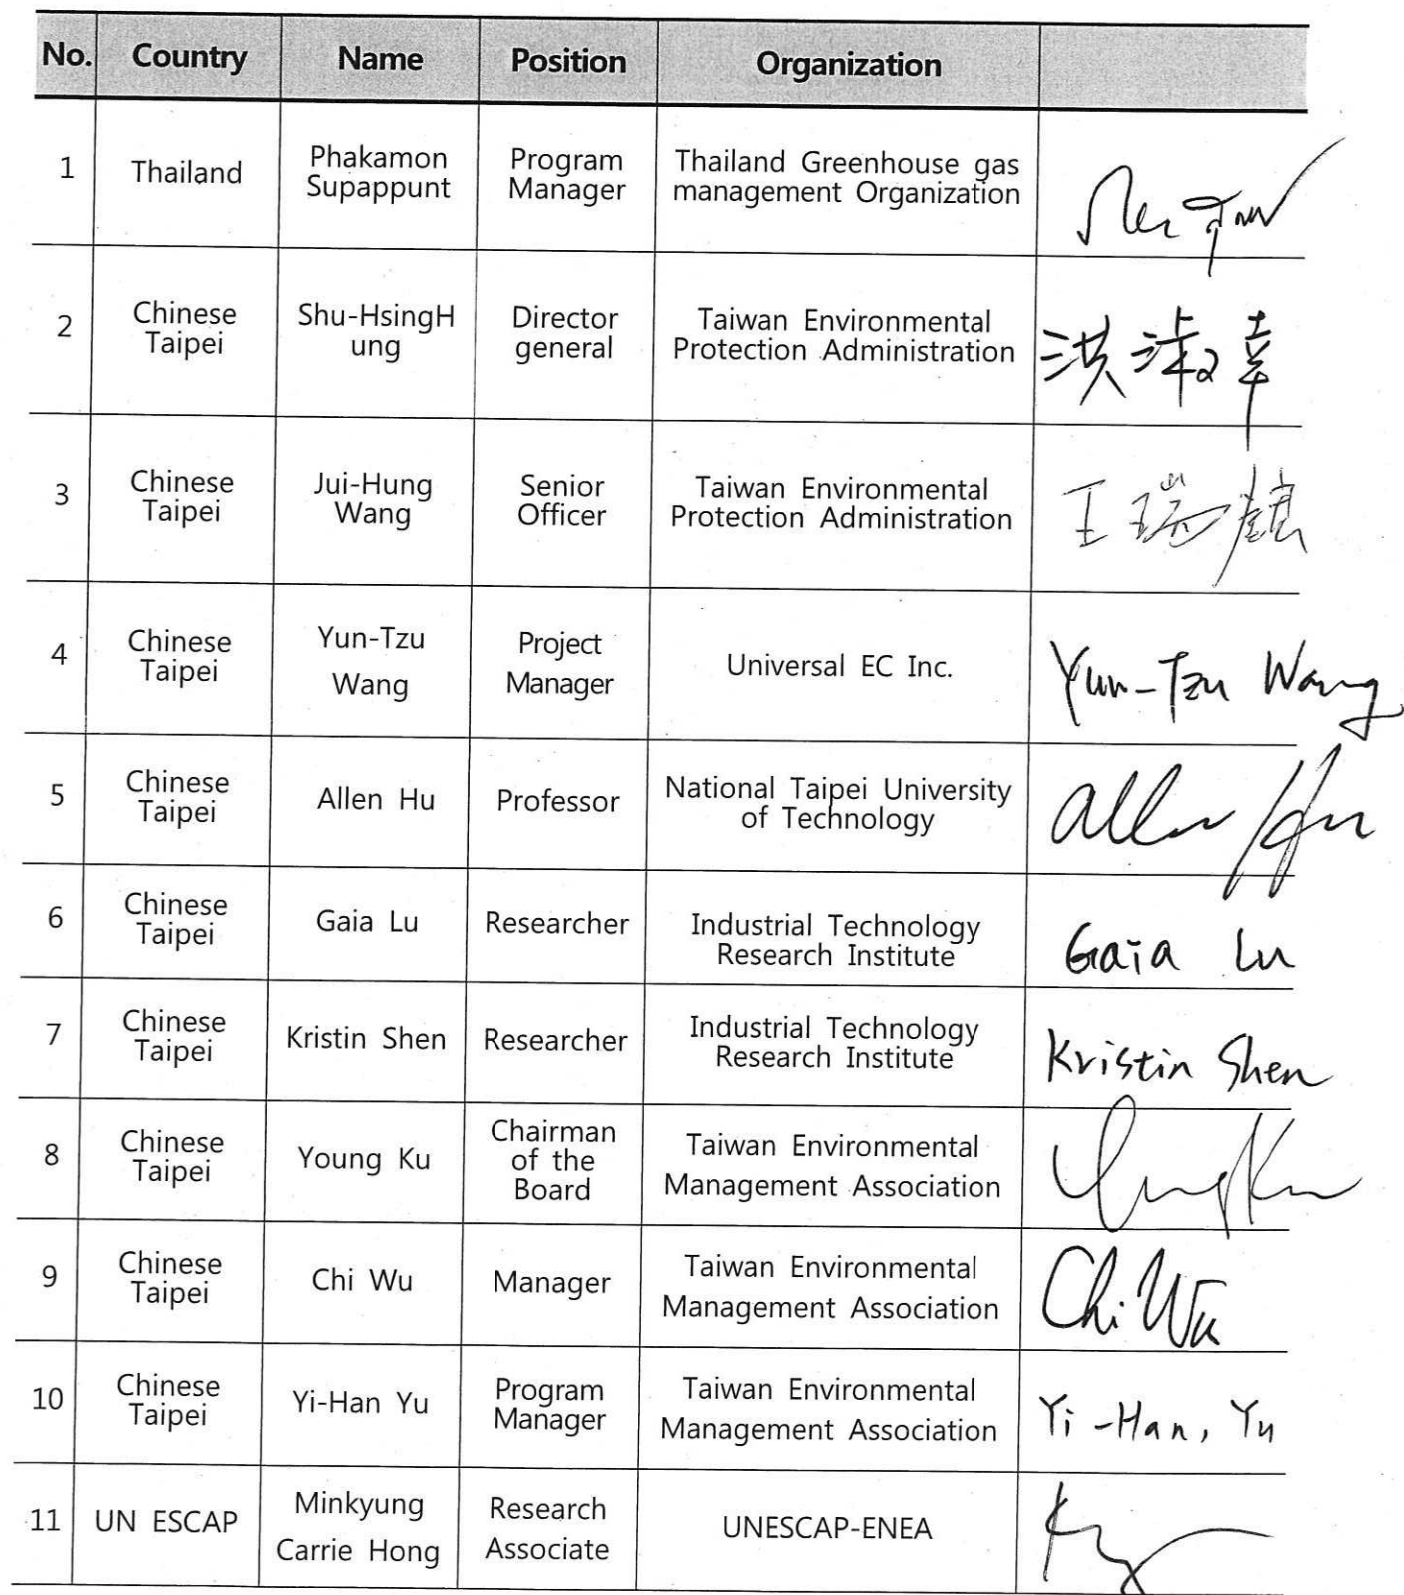 No. Country Name Position Organization
1 Thailand Phakamon Supappunt Program Manager Thailand Greenhouse gas management Organization
2 Chinese Taipei Shu-HsingH ung Director general Taiwan Environmental Protection Administration 洪淑幸
3 Chinese Taipei Jui-Hung Wang Senior Officer Taiwan Environmental Protection Administration 王瑞
4 Chinese Taipei Yun-Tzu Wang Project Manager Universal EC Inc. Yun-Tzu Wang
5 Chinese Taipei Allen Hu Professor National Taipei University of Technology Allen Hu
6 Chinese Taipei Gaia Lu Researcher Industrial Technology Research Institute Gaia Lu
7 Chinese Taipei Kristin Shen Researcher Industrial Technology Research Institute Kristin Shen
8 Chinese Taipei Young Ku Chairman of the Board Taiwan Environmental Management Association Young Ku
9 Chinese Taipei Chi Wu Manager Taiwan Environmental Management Association Chi Wu
10 Chinese Taipei Yi-Han Yu Program Manager Taiwan Environmental Management Association Yi-Han, Yu
11 UN ESCAP Minkyung Carrie Hong Research Associate UNESCAP-ENEA